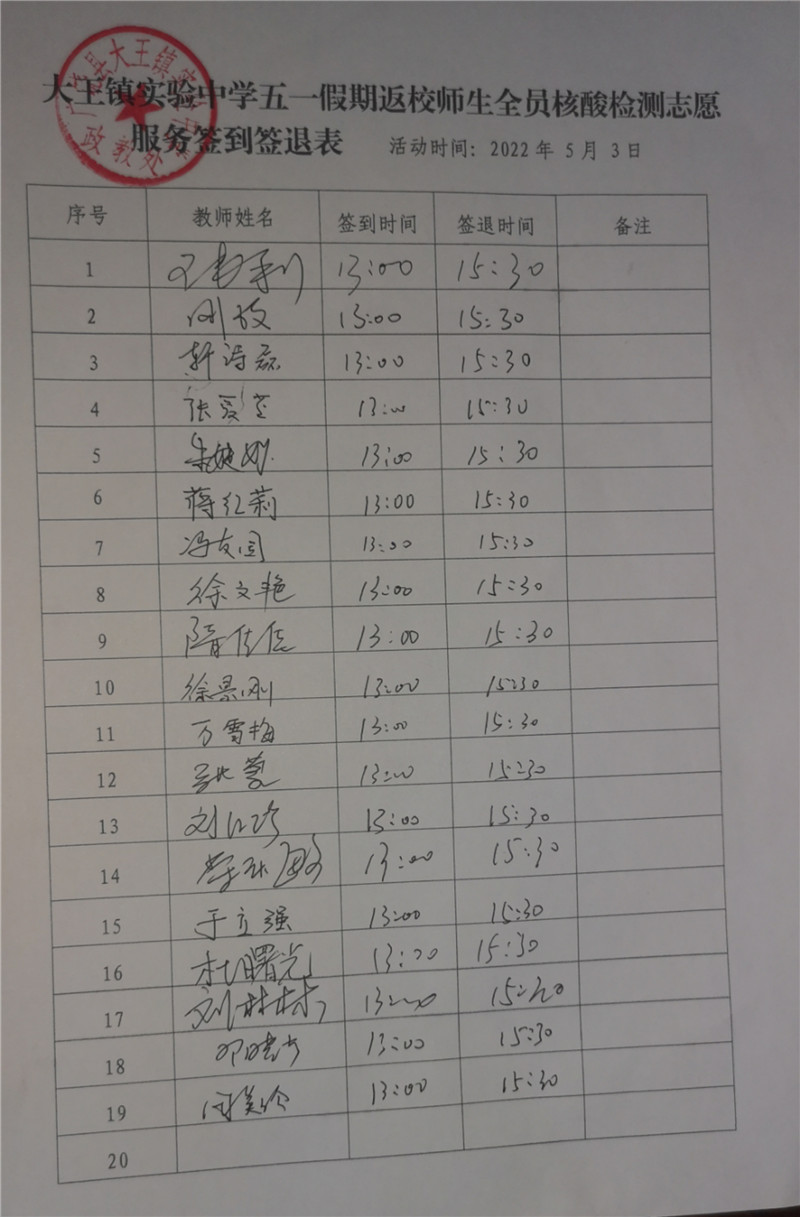 大王镇实验中学五一假期返校师生全员核酸检测志愿
服务签到签退表 活动时间：2022 年 5 月 3 日
政教处
序号 教师姓名 签到时间 签退时间 备注
1 13:00 15:30
2 13:00 15:30
3 13:00 15:30
4 13:00 15:30
5 13:00 15:30
6 蒋红莉 13:00 15:30
7 冯友国 13:00 15:30
8 徐文艳 13:00 15:30
9 隋佳佳 13:00 15:30
10 徐景刚 13:00 15:30
11 万雪梅 13:00 15:30
12 13:00 15:30
13 刘 13:00 15:30
14 13:00 15:30
15 于立强 13:00 15:30
16 杜曙光 13:00 15:30
17 刘林林 13:00
18 邓 13:00 15:30
19 闫美玲 13:00 15:30
20